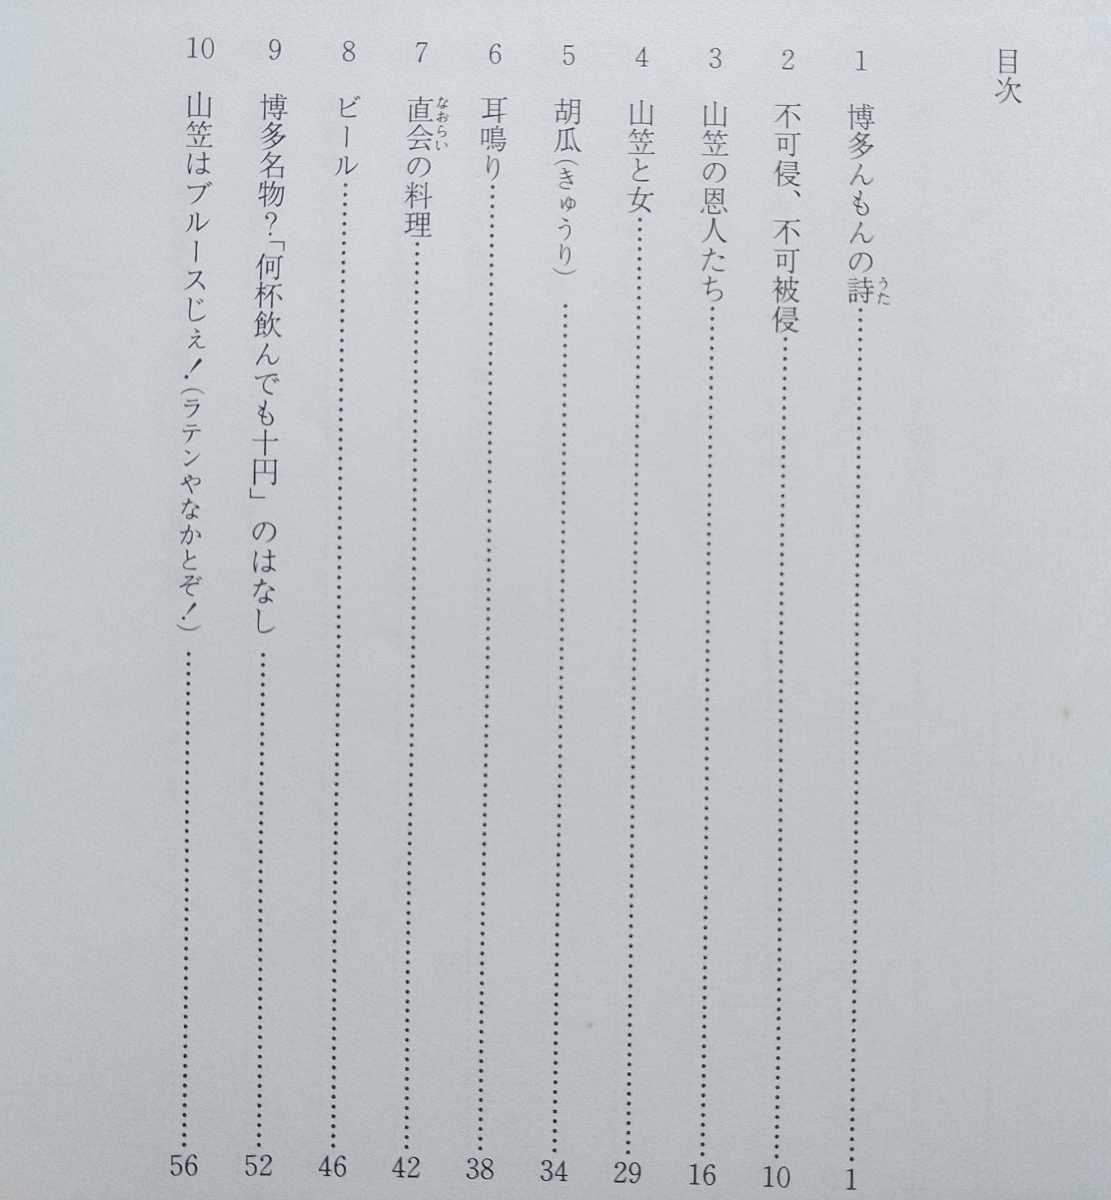 目次
1 博多んもんの詩(うた)……1
2 不可侵、不可被侵……10
3 山笠の恩人たち……16
4 山笠と女……29
5 胡瓜(きゅうり)……34
6 耳鳴り……38
7 直会(なおらい)の料理……42
8 ビール……46
9 博多名物?「何杯飲んでも十円」のはなし……52
10 山笠はブルースじぇ!(ラテンやなかとぞ!)……56